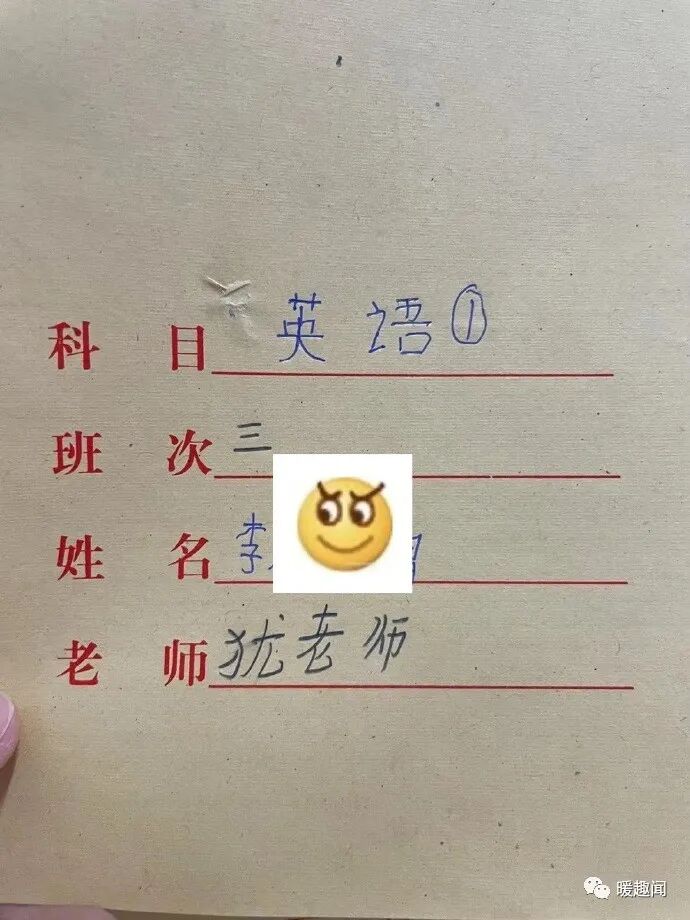 科 目 英语①
班 次 三
姓 名 李
老 师 犹老师
暖趣闻